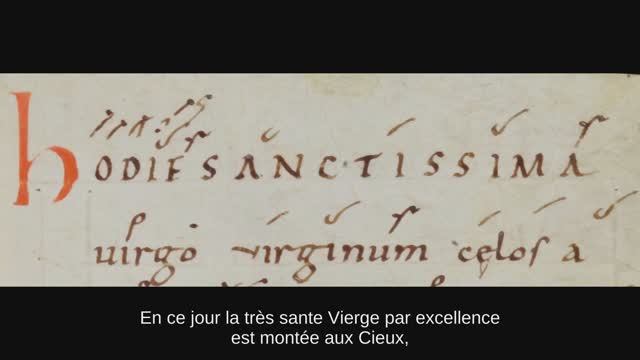 hODIE SANCTISSIMA
uirgo uirginum cęlos a
En ce jour la très sante Vierge par excellence
est montée aux Cieux,